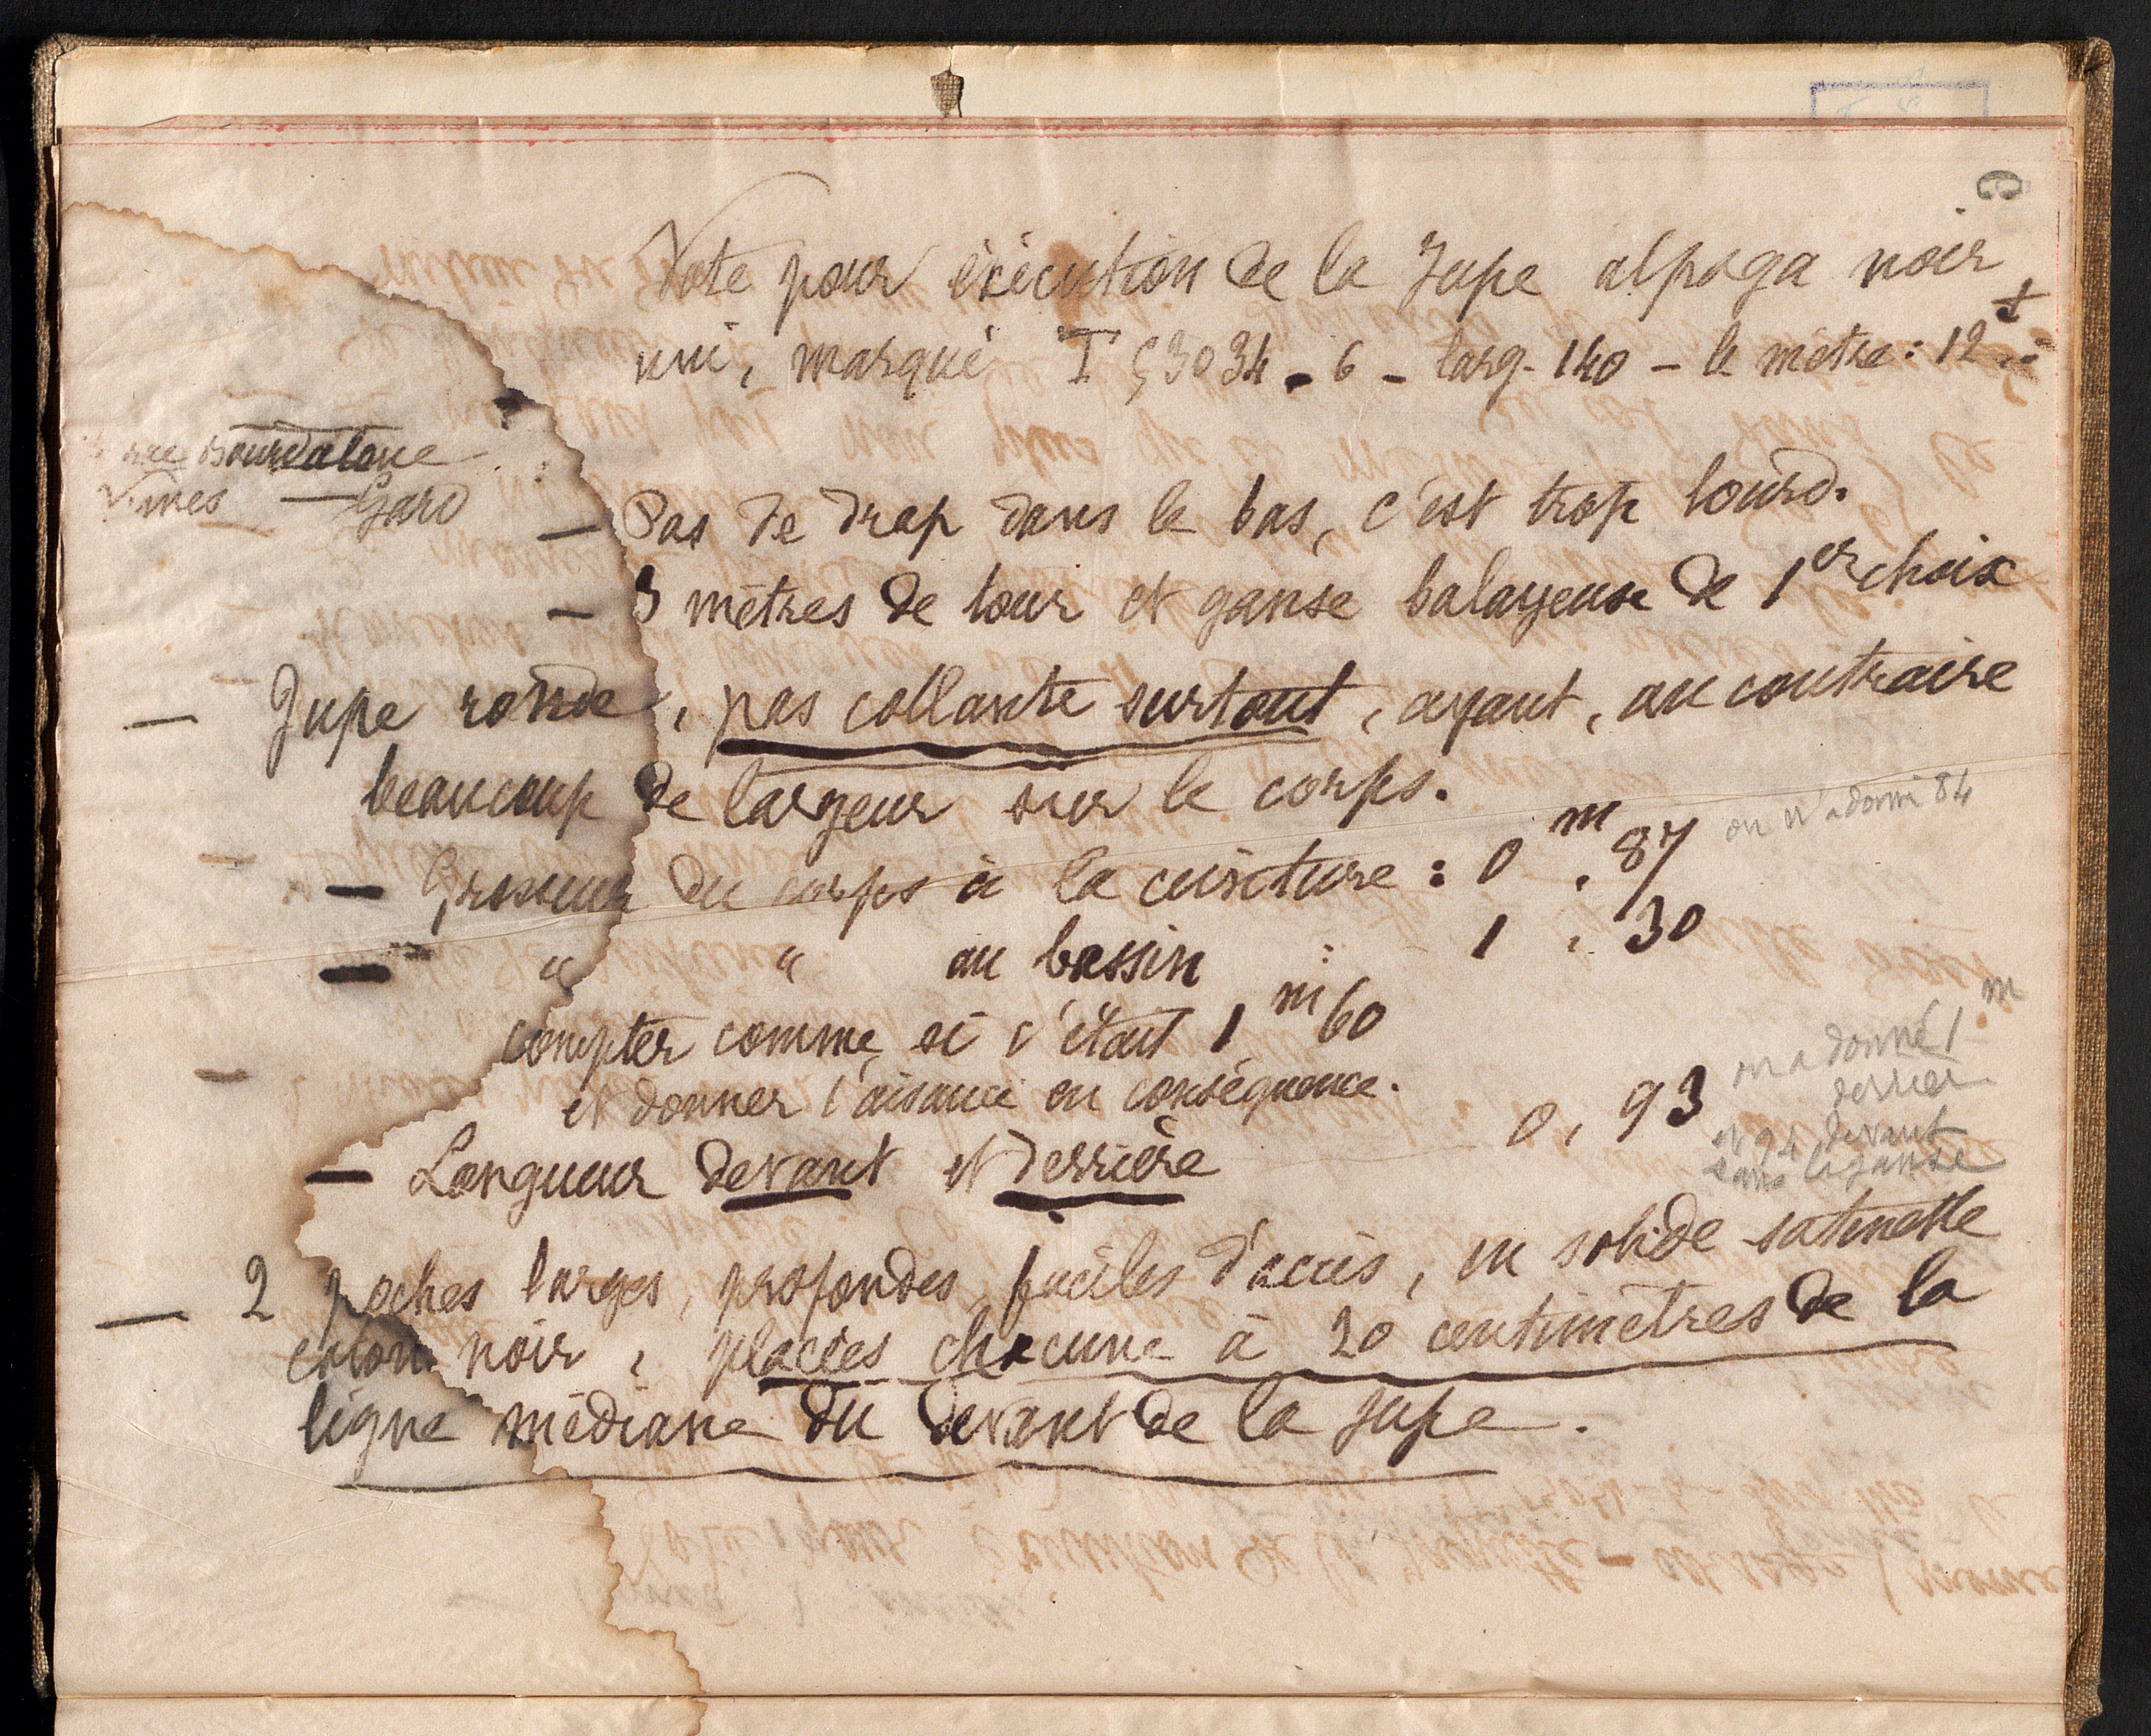 Note pour éxécution de la Jupe alpaga noir
uni, marqué I 53034 - 6 - larg. 140 - le mètre : 12
rue Bourdaloue
Nîmes — Gard
— Pas de drap dans le bas, c'est trop lourd.
— 3 mètres de tour et ganse balayeuse de 1er choix
— Jupe ronde, pas collante surtout, ayant, au contraire
beaucoup de largeur sur le corps.
— Grosseur du corps à la ceinture : 0 m, 87 on m'a donné 84
— " " au bassin : 1, 30
compter comme si c'était 1 m 60
et donner l'aisance en conséquence.
— Longueur devant et derrière 0, 93
on a donné 1 m
derrière
et 94 devant
sans la ganse
— 2 poches larges, profondes, faciles d'accès, en solide satinette
coton noir, placées chacune à 20 centimètres de la
ligne médiane du devant de la jupe.